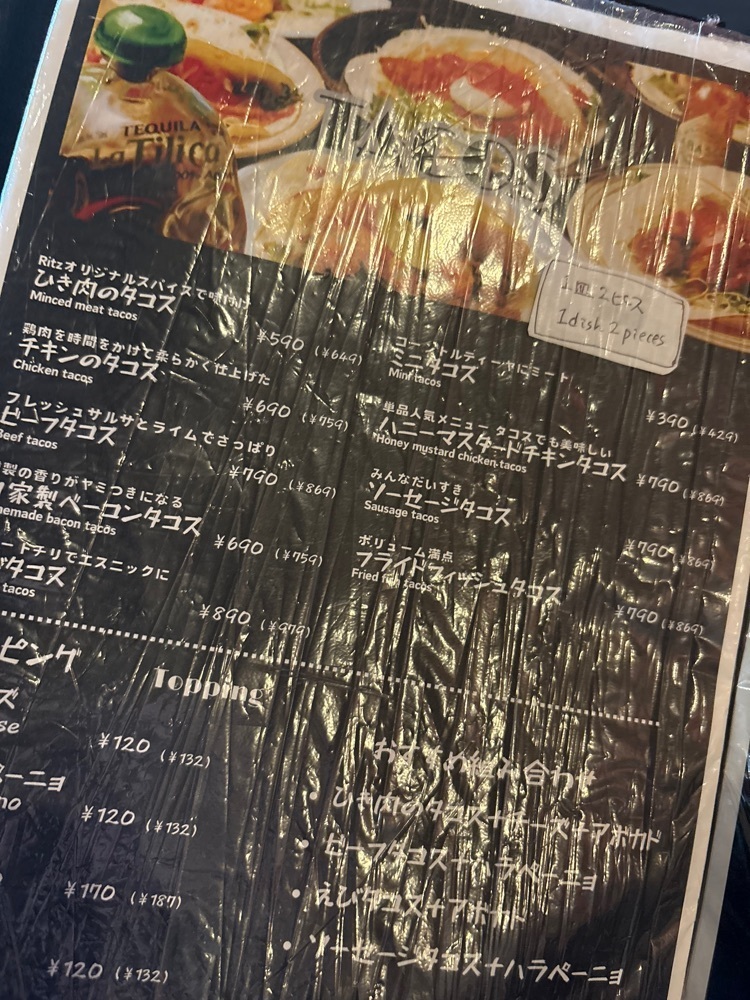 TEQUILA
La Tilica
TACOS
1皿 2ピース
1dish 2 pieces
Ritzオリジナルスパイスで味付け
ひき肉のタコス
Minced meat tacos
¥590 (¥649)
鶏肉を時間をかけて柔らかく仕上げた
チキンのタコス
Chicken tacos
¥690 (¥759)
フレッシュサルサとライムでさっぱり
ビーフタコス
Beef tacos
¥790 (¥869)
製の香りがヤミつきになる
家製ベーコンタコス
emade bacon tacos
¥690 (¥759)
ートチリでエスニックに
タコス
tacos
¥890 (¥979)
コーントルティーヤにミート
ミニタコス
Mini tacos
¥390 (¥429)
単品人気メニュー タコスでも美味しい
ハニーマスタードチキンタコス
Honey mustard chicken tacos
¥790 (¥869)
みんなだいすき
ソーセージタコス
Sausage tacos
¥790 (¥869)
ボリューム満点
フライドフィッシュタコス
Fried fish tacos
¥790 (¥869)
ピング
Topping
ズ
se
¥120 (¥132)
ーニョ
no
¥120 (¥132)
¥170 (¥187)
¥120 (¥132)
おすすめ組み合わせ
・ひき肉のタコス+チーズ+アボカド
・ビーフタコス+ハラペーニョ
・えびタコス+アボカド
・ソーセージタコス+ハラペーニョ